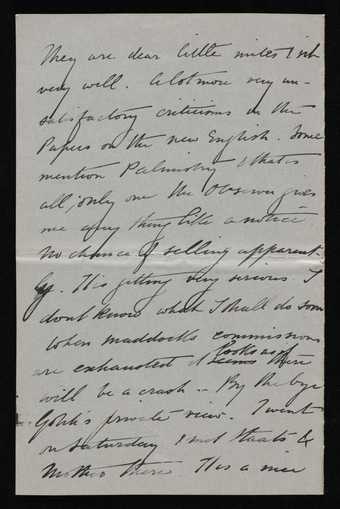 They are dear little mites & sit
very well. A lot more very un-
satisfactory criticisms in the
Papers on the new English. Some
mention Palmistry & that is
all; only one the Observer gives
me any thing like a notice
No chance of selling apparent-
ly. It is getting very serious. I
dont know what I shall do soon
When Maddocks commissions
are exhausted it looks as if there
will be a crash -- By the bye
private view. I went
on Saturday & met Staats &
Mother there. It is a nice